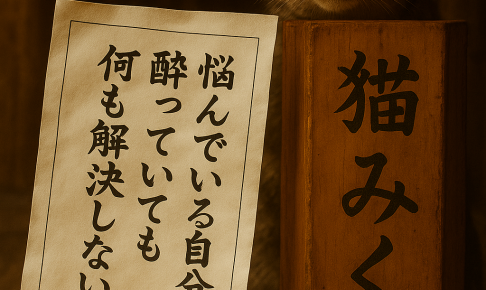 悩んでいる自分
酔っていても
何も解決しない
猫みく